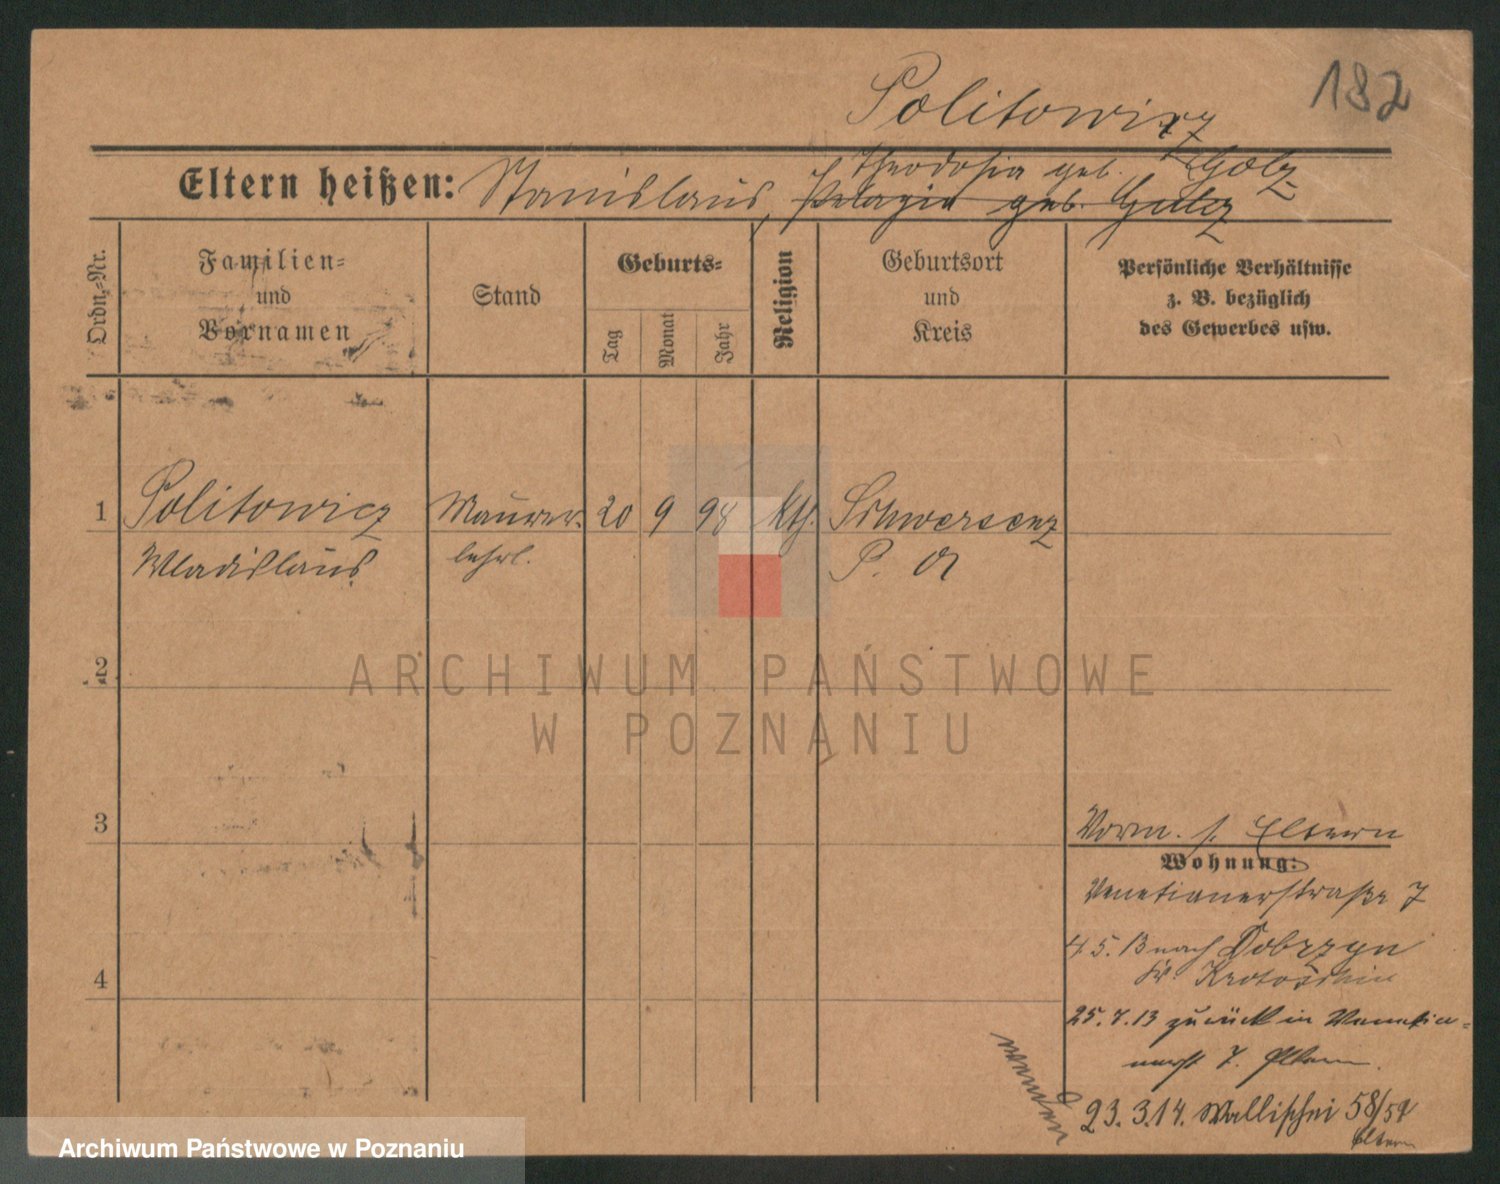 182
Politowicz
Theodosia geb. Golz
Eltern heißen: Stanislaus, Pelagia geb. Golcz
Ordn.-Nr.
Familien-
und
Vornamen
Stand
Geburts-
Tag
Monat
Jahr
Religion
Geburtsort
und
Kreis
Persönliche Verhältnisse
z. B. bezüglich
des Gewerbes usw.
1 Politowicz Maurer- 20 9 98 kth. Schwersenz
Wladislaus lehrl. P. O
2
3
4
Vorm. s. Eltern
Wohnung:
Venetianerstraße 7
4.5.13 nach Dobrzyn
Kr. Krotoschin
25.7.13 zurück in Venetia-
nerst 7. Eltern.
23.3.14. Wallischei 58/59
Eltern
wenden
ARCHIWUM PAŃSTWOWE
W POZNANIU
Archiwum Państwowe w Poznaniu